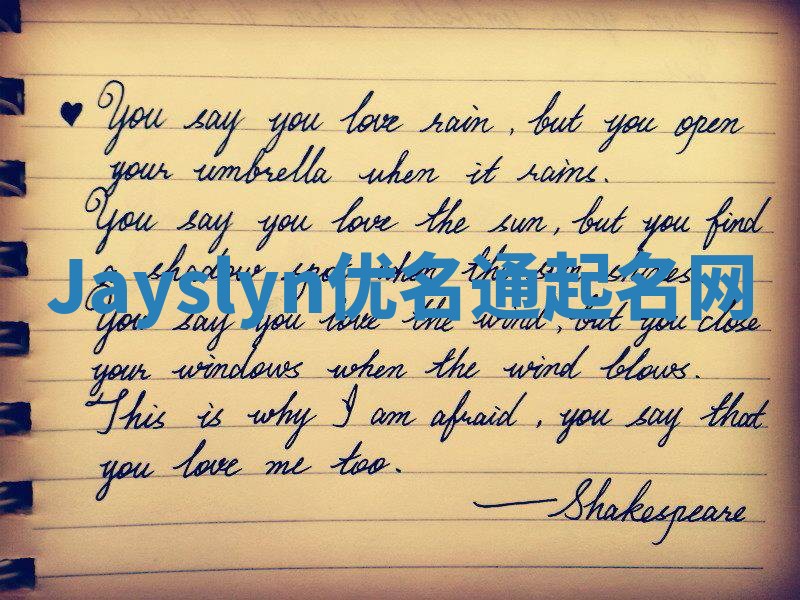 ♥ You say you love rain, but you open
your umbrella when it rains.
You say you love the sun, but you find
a shadow spot when the sun shines
Jayslyn优名通起名网
You say you love the wind, but you close
your windows when the wind blows.
This is why I am afraid, you say that
you love me too.
—Shakespeare